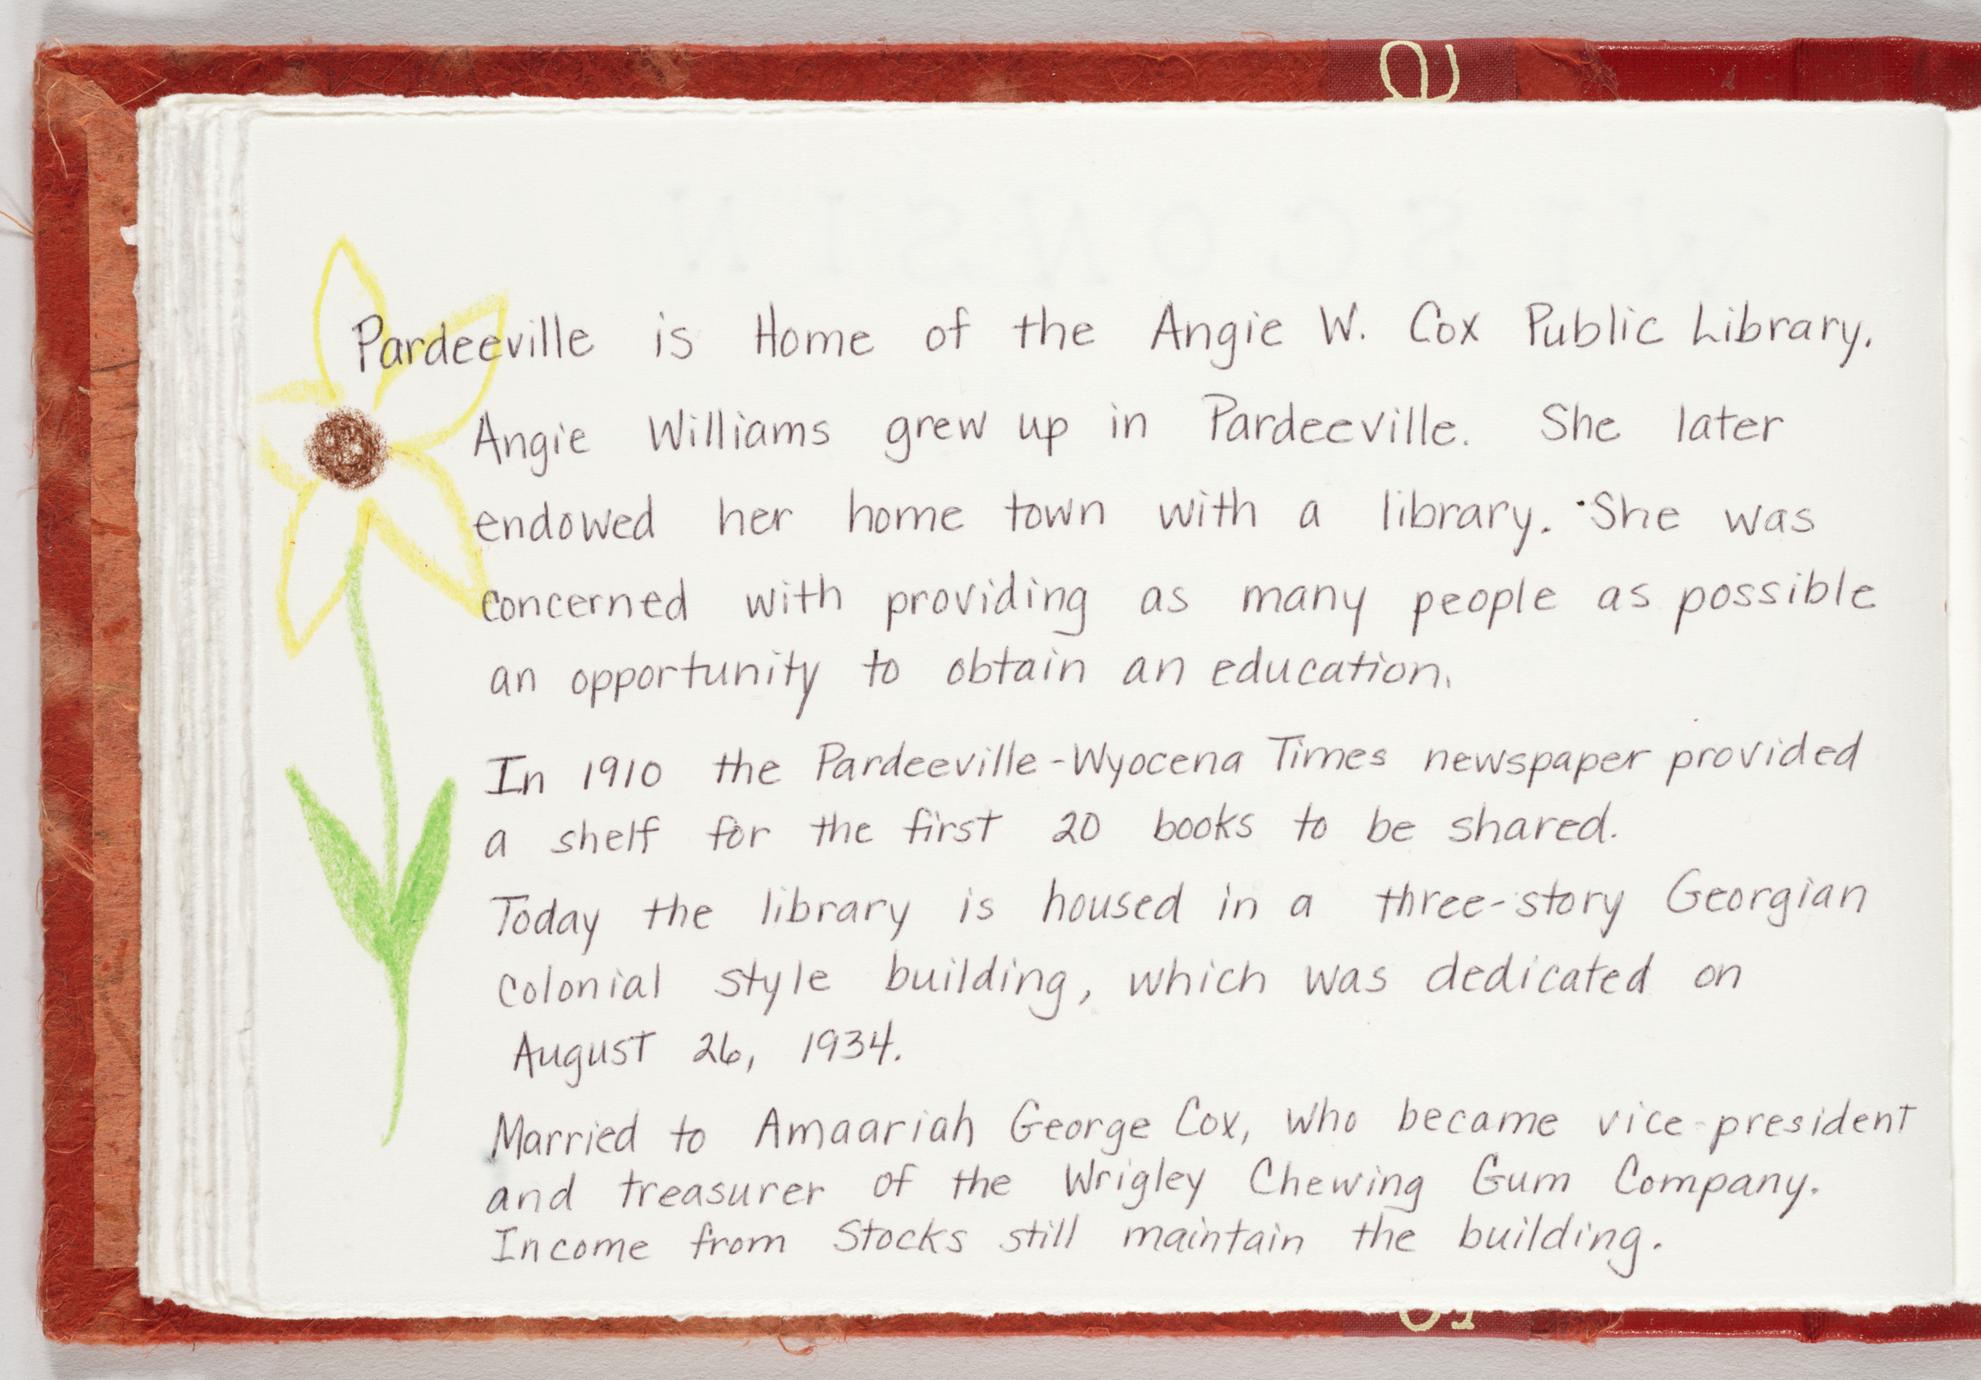 WISCONSIN
Pardeeville is Home of the Angie W. Cox Public Library.
Angie Williams grew up in Pardeeville. She later
endowed her home town with a library. She was
concerned with providing as many people as possible
an opportunity to obtain an education.
In 1910 the Pardeeville-Wyocena Times newspaper provided
a shelf for the first 20 books to be shared.
Today the library is housed in a three-story Georgian
Colonial style building, which was dedicated on
August 26, 1934.
Married to Amaariah George Cox, who became vice-president
and treasurer of the Wrigley Chewing Gum Company.
Income from Stocks still maintain the building.